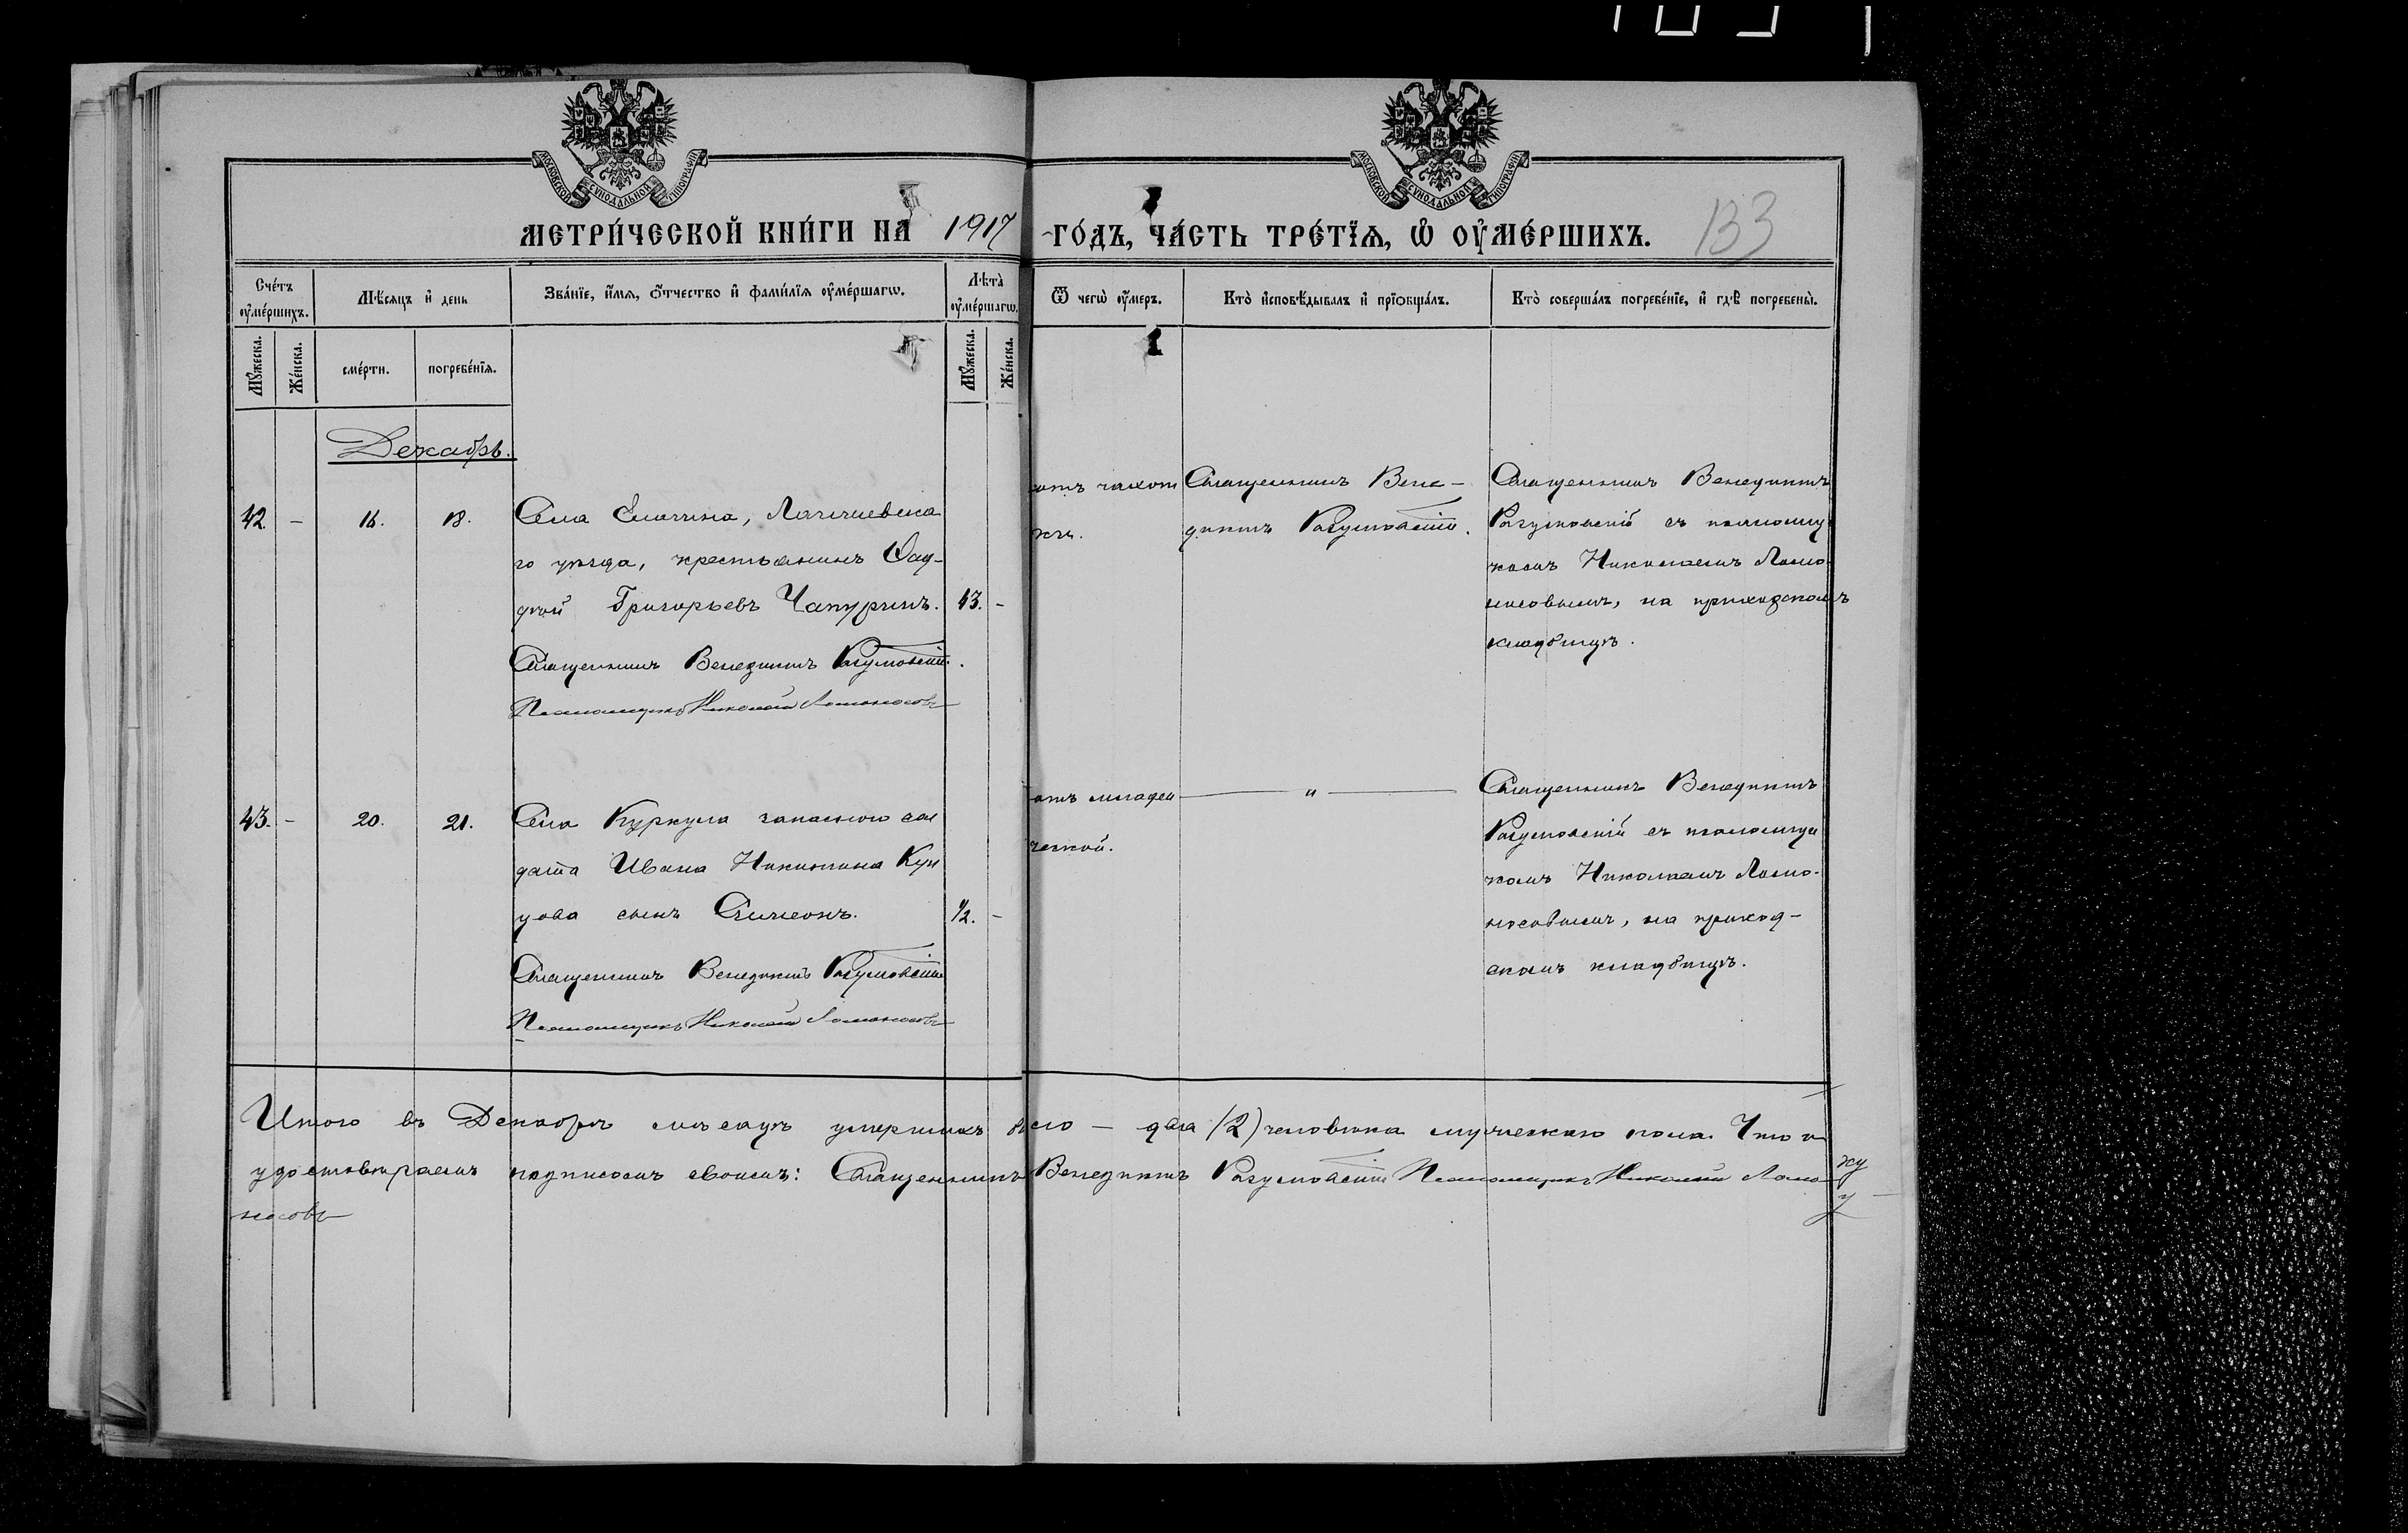 МОСКОВСКОЙ СѴНОДАЛЬНОЙ ТИПОГРАФІИ
МОСКОВСКОЙ СѴНОДАЛЬНОЙ ТИПОГРАФІИ
МЕТРИ́ЧЕСКОЙ КНИ́ГИ НА 1917 ГО́ДЪ, ЧА́СТЬ ТРЕ́ТЇѦ, Ѡ҆ ОУ҆МЕ́РШИХЪ. 133
Сче́тъ оу҆ме́ршихъ.
Мѣ́сѧцъ и҆ де́нь
Зва́нїе, и҆́мѧ, ѻ҆́тчество и҆ фами́лїѧ оу҆ме́ршагѡ.
Лѣ̀та̀ оу҆ме́ршагѡ.
Ѿ чегѡ̀ оу҆́меръ.
Кто̀ и҆сповѣ́дывалъ и҆ прїѻбща́лъ.
Кто̀ соверша́лъ погребе́нїе, и҆ гдѣ̀ погребены̀.
Мꙋ́жеска.
Же́нска.
сме́рти.
погребе́нїѧ.
Мꙋ́жеска.
Же́нска.
Декабрь.
42. - 16. 18.
Села Елагина,
го уѣзда, крестьянинъ Фад-
дей Григорьевъ Чапуринъ. 43. -
Священникъ Венедиктъ Разумовскій.
Псаломщикъ Николай Ломоносовъ
отъ чахот
ки.
Священникъ Вене-
диктъ Разумовскій.
Священникъ Венедиктъ
Разумовскій съ псаломщи
комъ Николаемъ Ломо
носовымъ, на приходскомъ
кладбищѣ.
43. - 20. 21.
Села Куркула запасного сол
дата Ивана Никитина Кун
цова сынъ Симеонъ. 1/2. -
Священникъ Венедиктъ Разумовскій
Псаломщикъ Николай Ломоносовъ
отъ младен
ческой.
— " —
Священникъ Венедиктъ
Разумовскій съ псаломщи
комъ Николаемъ Ломо-
носовымъ, на приход-
скомъ кладбищѣ.
Итого въ Декабрѣ мѣсяцѣ умершихъ всего — два (2) человѣка мужескаго пола. Что и
удостовѣряемъ подписомъ своимъ: Священникъ Венедиктъ Разумовскій Псаломщикъ Николай Ломо
носовъ